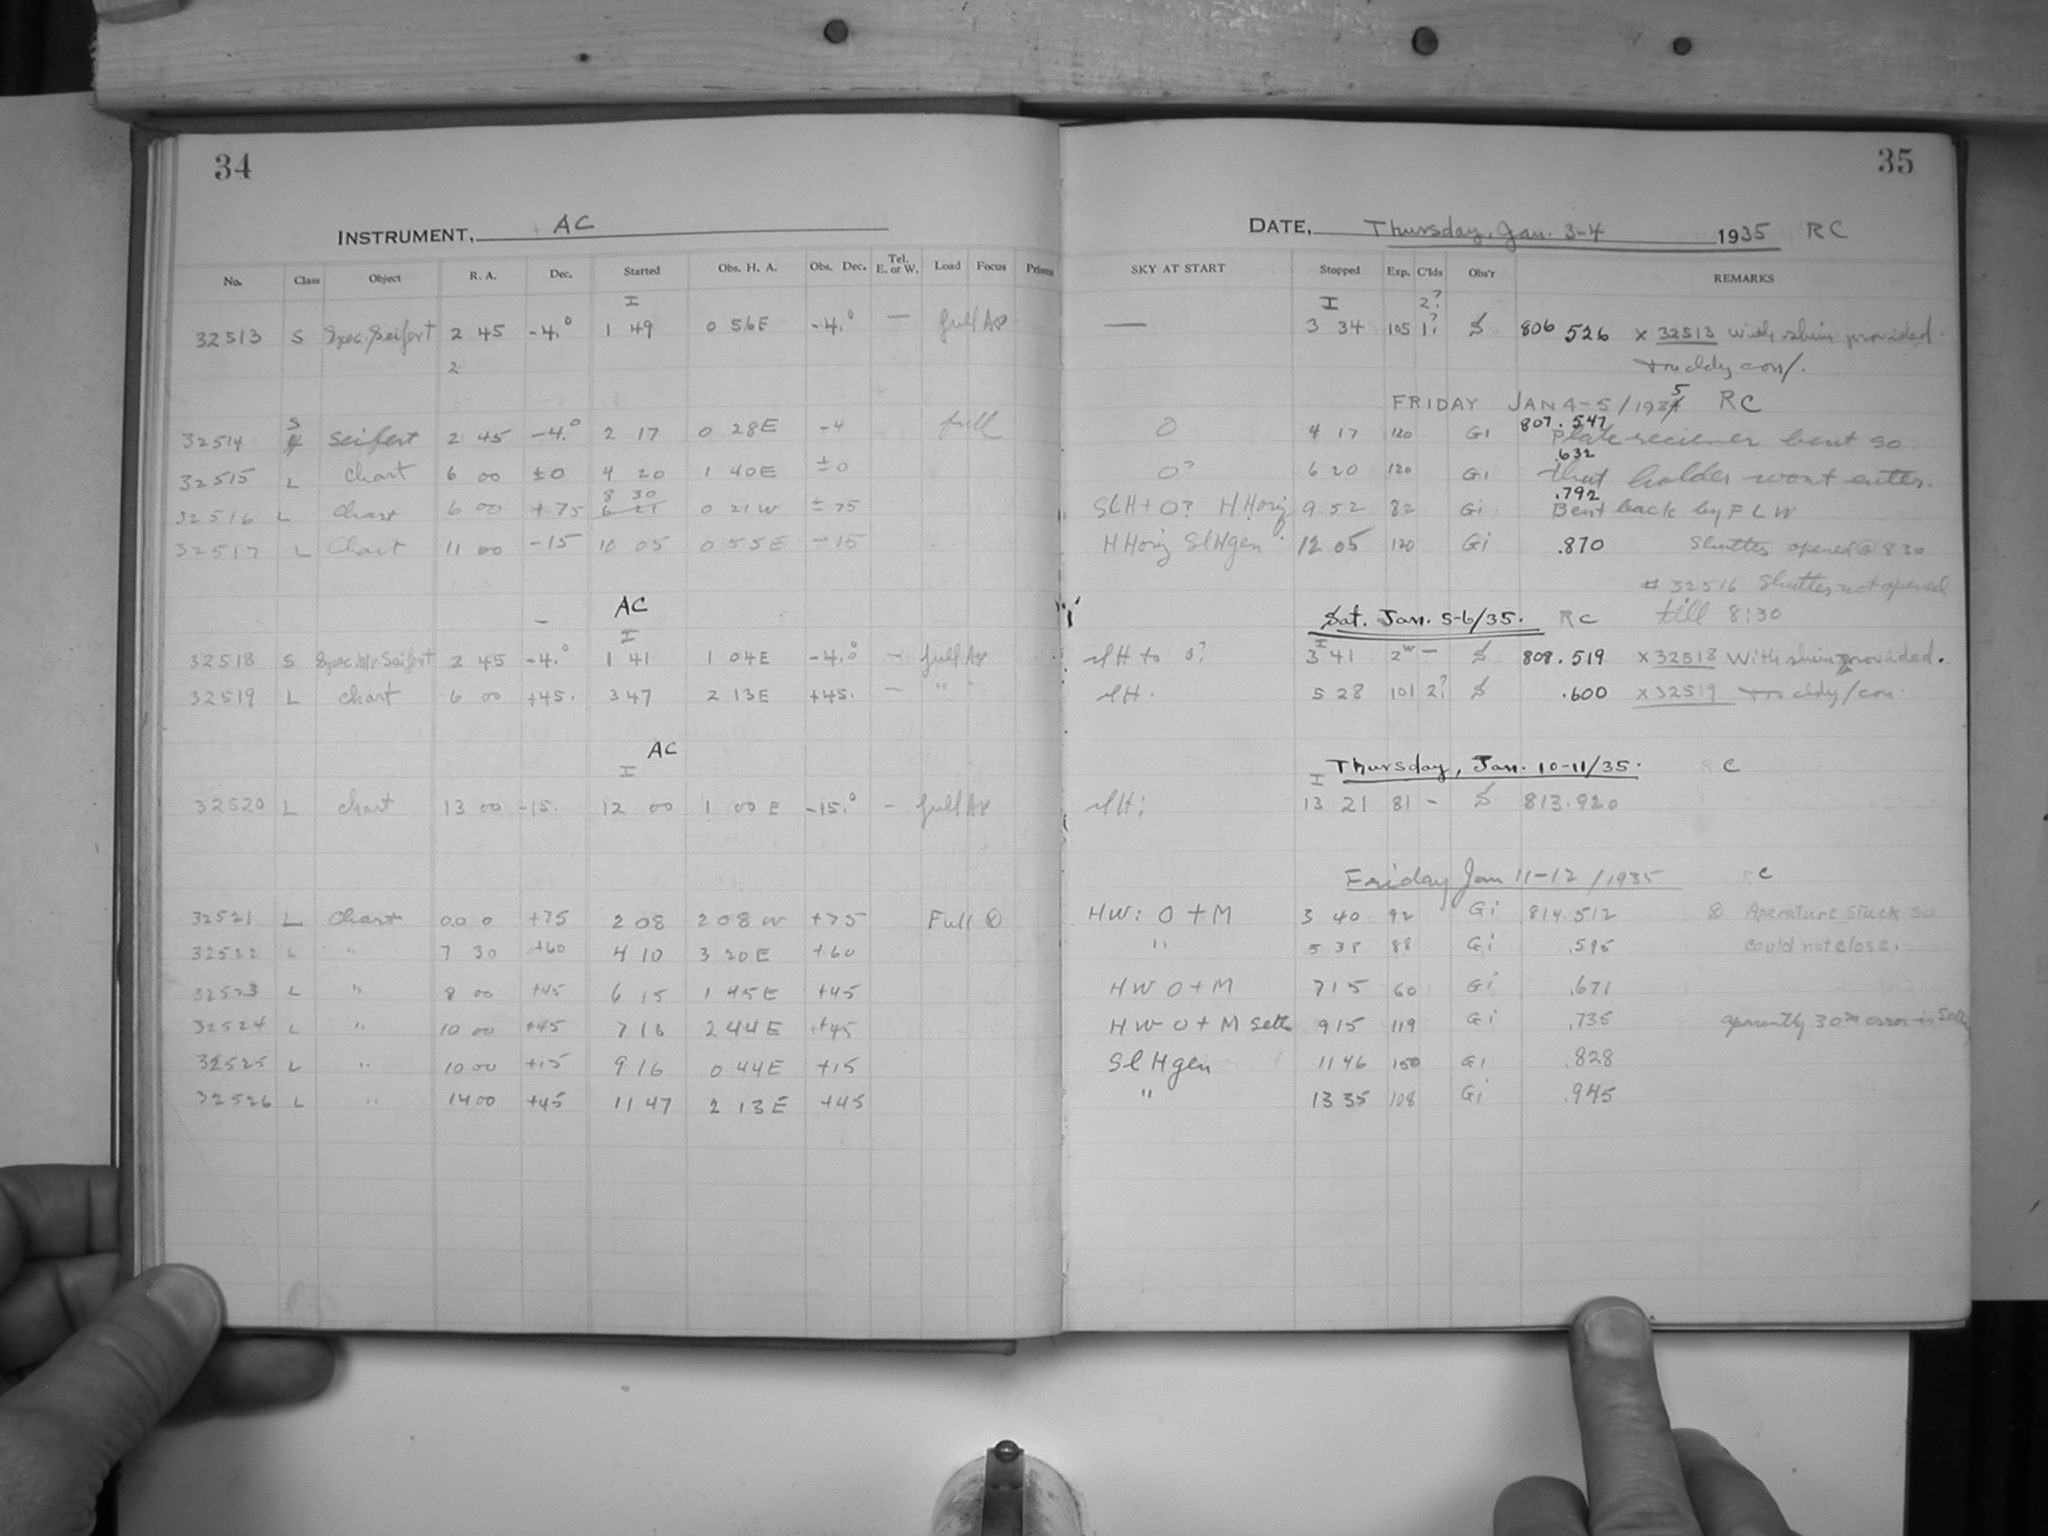 34
INSTRUMENT, AC
No. Class Object R. A. Dec. Started Obs. H. A. Obs. Dec. Tel. E. or W. Load Focus Prisms
I
32513 S Spec. Seifert 2 45 -4.° 1 49 0 56E -4.° — full Ap.
2
32514 S Seifert 2 45 -4.° 2 17 0 28E -4 full
32515 L Chart 6 00 ±0 4 20 1 40E ±0
8 30
32516 L Chart 6 00 +75 6 21 0 21W ±75
32517 L Chart 11 00 -15 10 05 0 55E -15
AC
I
32518 S Seifert 2 45 -4.° 1 41 1 04E -4.° — full Ap
32519 L chart 6 00 +45. 3 47 2 13E +45. — " "
AC
I
32520 L chart 13 00 -15. 12 00 1 00 E -15.° - full Ap
32521 L Chart 0 0 0 +75 2 08 2 08 W +75 Full ⊗
32522 L " 7 30 +60 4 10 3 20E +60
32523 L " 8 00 +45 6 15 1 45E +45
32524 L " 10 00 +45 7 16 2 44E +45
32525 L " 10 00 +15 9 16 0 44E +15
32526 L " 14 00 +45 11 47 2 13E +45
35
DATE, Thursday, Jan. 3-4 1935 RC
SKY AT START Stopped Exp. C'lds Obs'r REMARKS
I 2?
— 3 34 105 1? S 806 526 x 32513 with shim provided.
FRIDAY JAN 4-5/1935 RC
O 4 17 120 Gi 807.547 Plate reciever bent so
O? 6 20 120 Gi .632 that holder wont enter.
SlH+O? H Horiz 9 52 82 Gi .792 Bent back by FLW
H Horiz SlHgen 12 05 120 Gi .870 Shutter opened @ 8 30
# 32516 Shutter not opened
till 8:30
Sat. Jan. 5-6/35. RC
I
slH to O? 3 41 2 — S 808.519 x 32518 With shim provided.
slH. 5 28 101 2? S .600 x 32519
Thursday, Jan. 10-11/35. RC
I
slH; 13 21 81 - S 813.920
Friday Jan 11-12 /1935 RC
HW: O+M 3 40 92 Gi 814.512 ⊗ Aperature stuck so
" 5 38 88 Gi .595 could not close.
HW O+M 7 15 60 Gi .671
HW O+M 9 15 119 Gi .735 aparently 30m error in
Sl Hgen 11 46 150 Gi .828
" 13 35 108 Gi .945